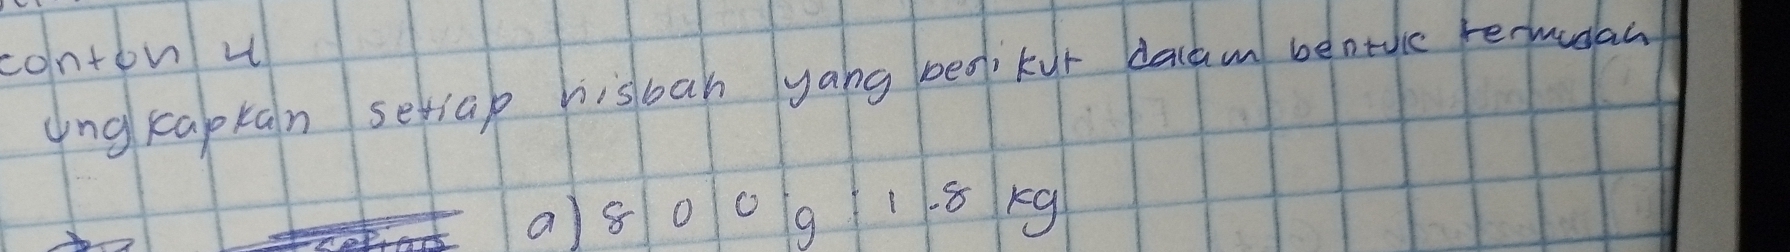 conton 4
ungkapkan setiap nisbah yang berikut dalam bentuk termudah
a) 800g : 1.8 kg